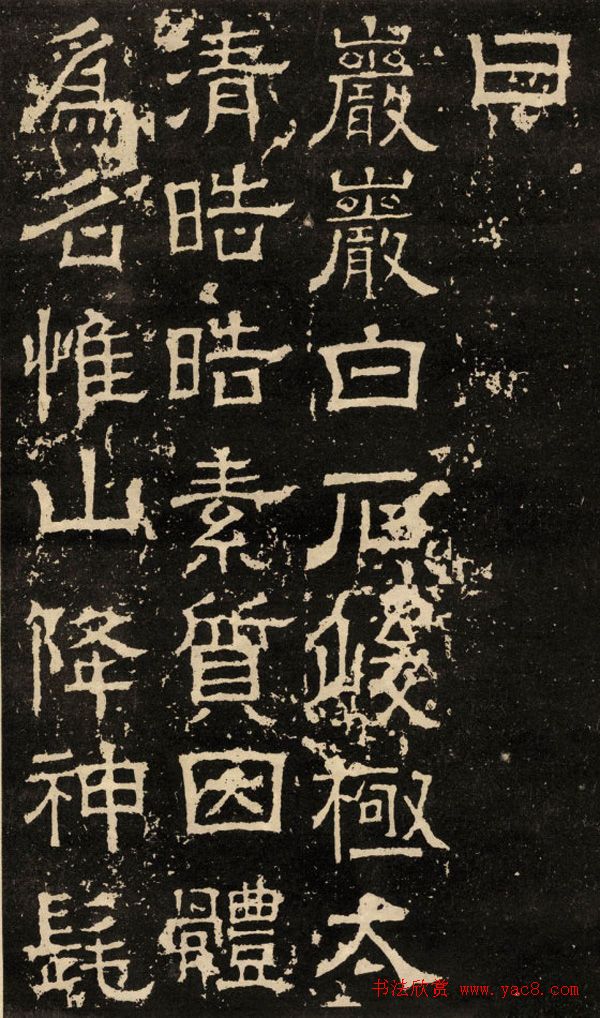 曰
巖巖白石峻極太
清皓皓素質因體
爲名惟山降神髦
书法欣赏 www.yac8.com